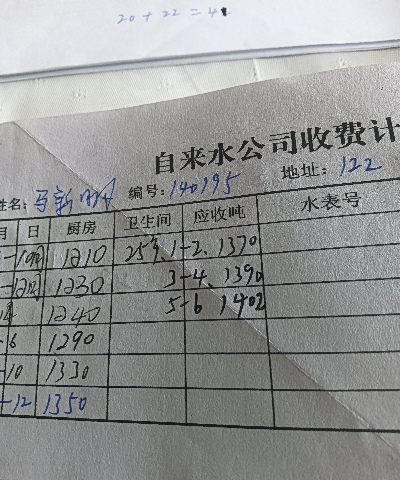 20 + 22 = 4
自来水公司收费计
姓名: 马新 编号: 140195 地址: 122
月 日 厨房 卫生间 应收吨 水表号
1210 1-2. 1370
1230 3-4. 1390
1240 5-6 1402
-6 1290
-10 1330
-12 1350